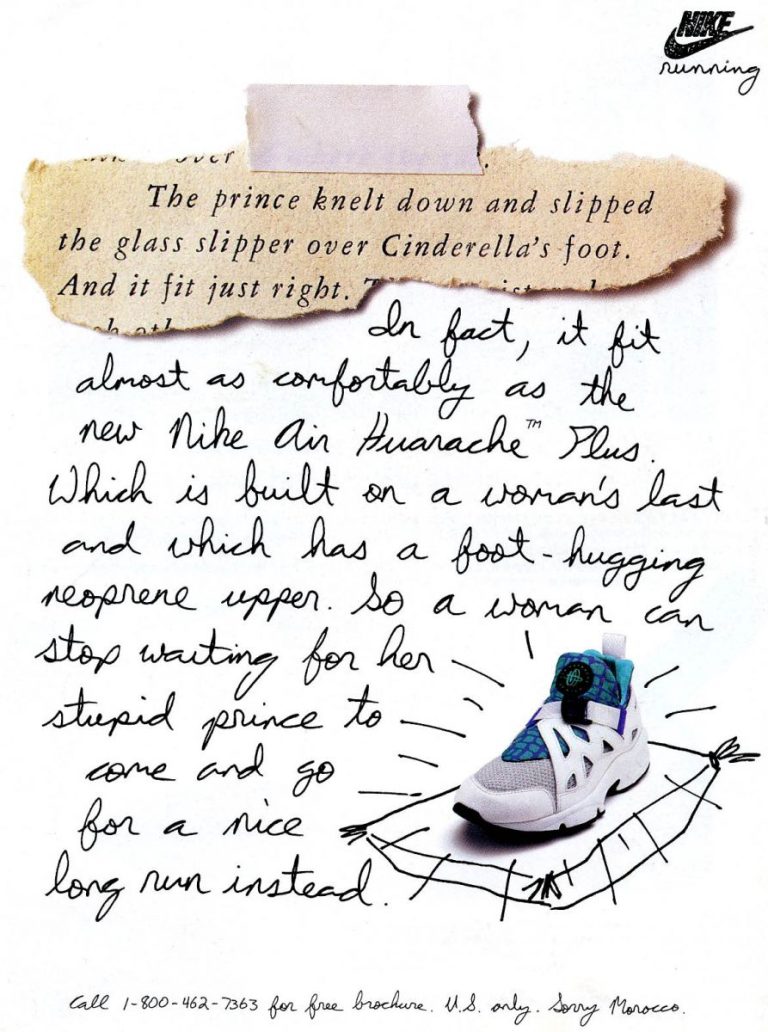 NIKE
running
over
The prince knelt down and slipped
the glass slipper over Cinderella's foot.
And it fit just right.
In fact, it fit
almost as comfortably as the
new Nike Air Huarache™ Plus.
Which is built on a woman's last
and which has a foot-hugging
neoprene upper. So a woman can
stop waiting for her
stupid prince to
come and go
for a nice
long run instead.
Call 1-800-462-7363 for free brochure. U.S. only. Sorry Morocco.